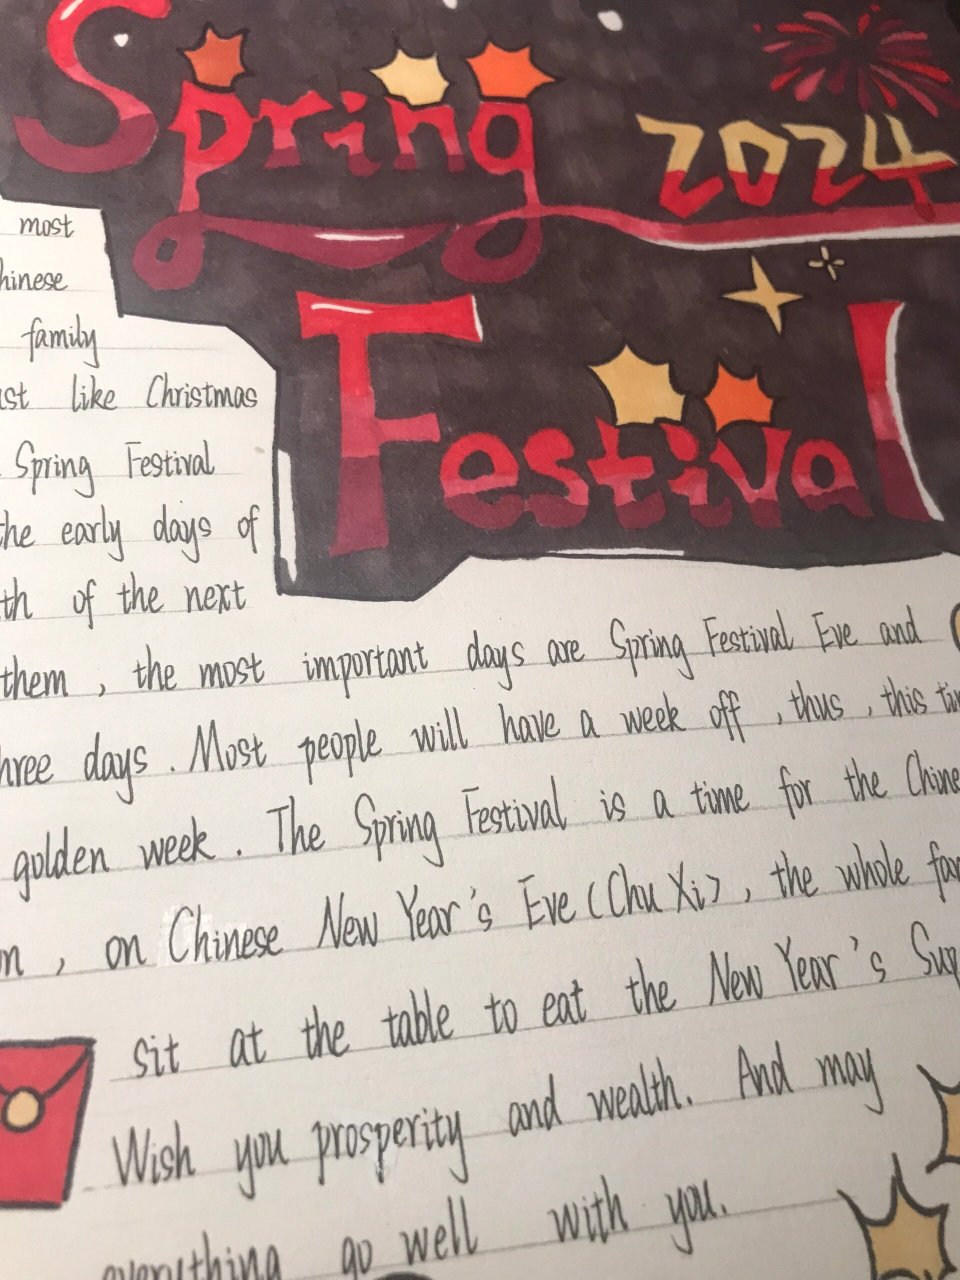 Spring 2024
Festival
most
family
like Christmas
Spring Festival
early days of
of the next
them , the most important days are Spring Festival Eve and
days . Most people will have a week off , thus , this
golden week . The Spring Festival is a time for the
, on Chinese New Year's Eve (Chu Xi) , the whole
sit at the table to eat the New Year's
Wish you prosperity and wealth. And may
everything go well with you.